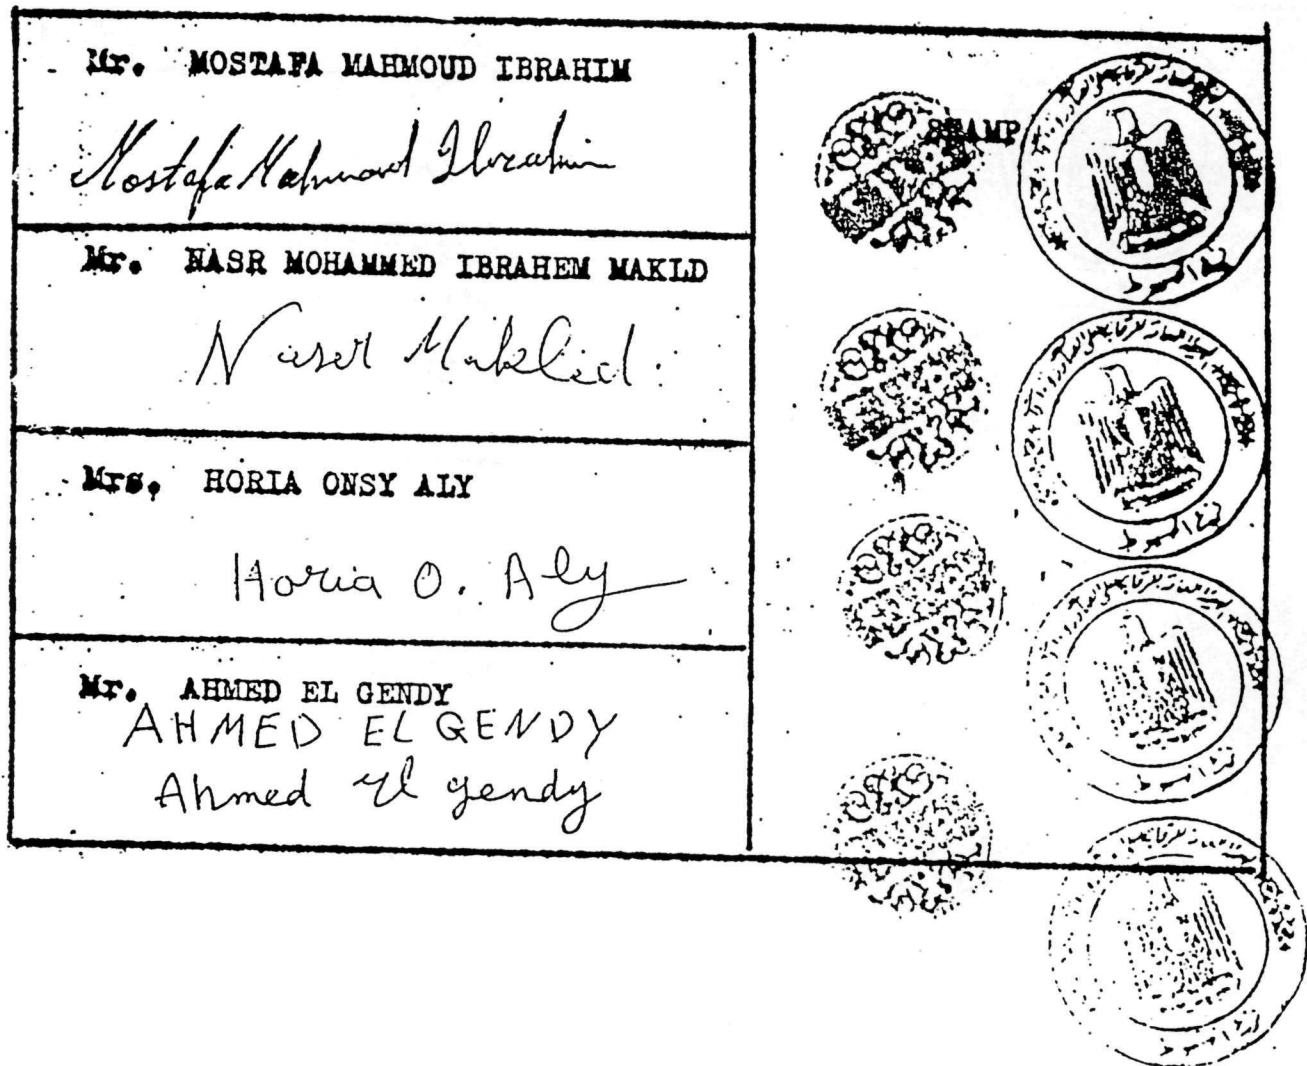 Mr. MOSTAFA MAHMOUD IBRAHIM
Mostafa Mahmoud Ibrahim
STAMP
Mr. NASR MOHAMMED IBRAHEM MAKLD
Naser Maklid.
Mrs. HORIA ONSY ALY
Horia O. Aly
Mr. AHMED EL GENDY
AHMED EL GENDY
Ahmed el gendy